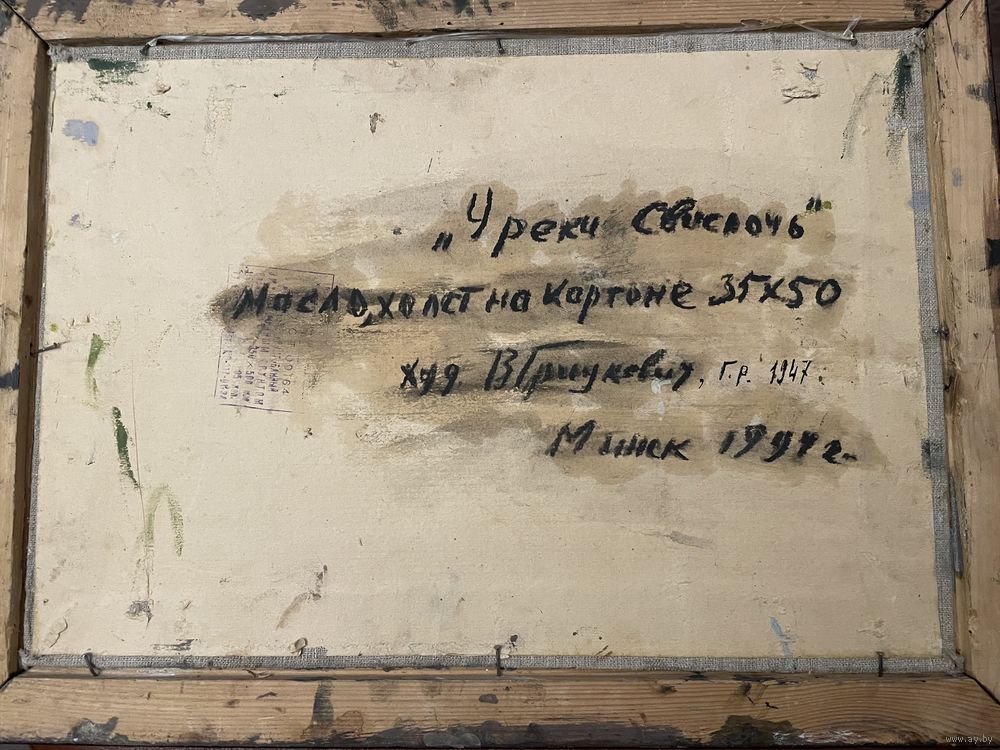 „У реки Свислочь"
Масло, холст на картоне 35х50
худ В Грищукевич, г.р. 1947.
Минск г.
www.ay.by